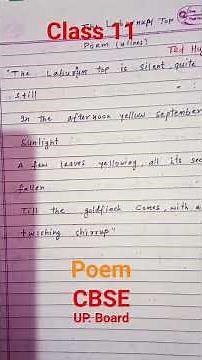 Class 11
The Laburnum Top
Poem (4 lines)
Ted Hu
"The Laburnum top is silent, quite
still
In the afternoon yellow September
Sunlight:
A few leaves yellowing, all its see
fallen
Till the goldfinch comes, with a
twitching chirrup"
Poem
CBSE
UP. Board